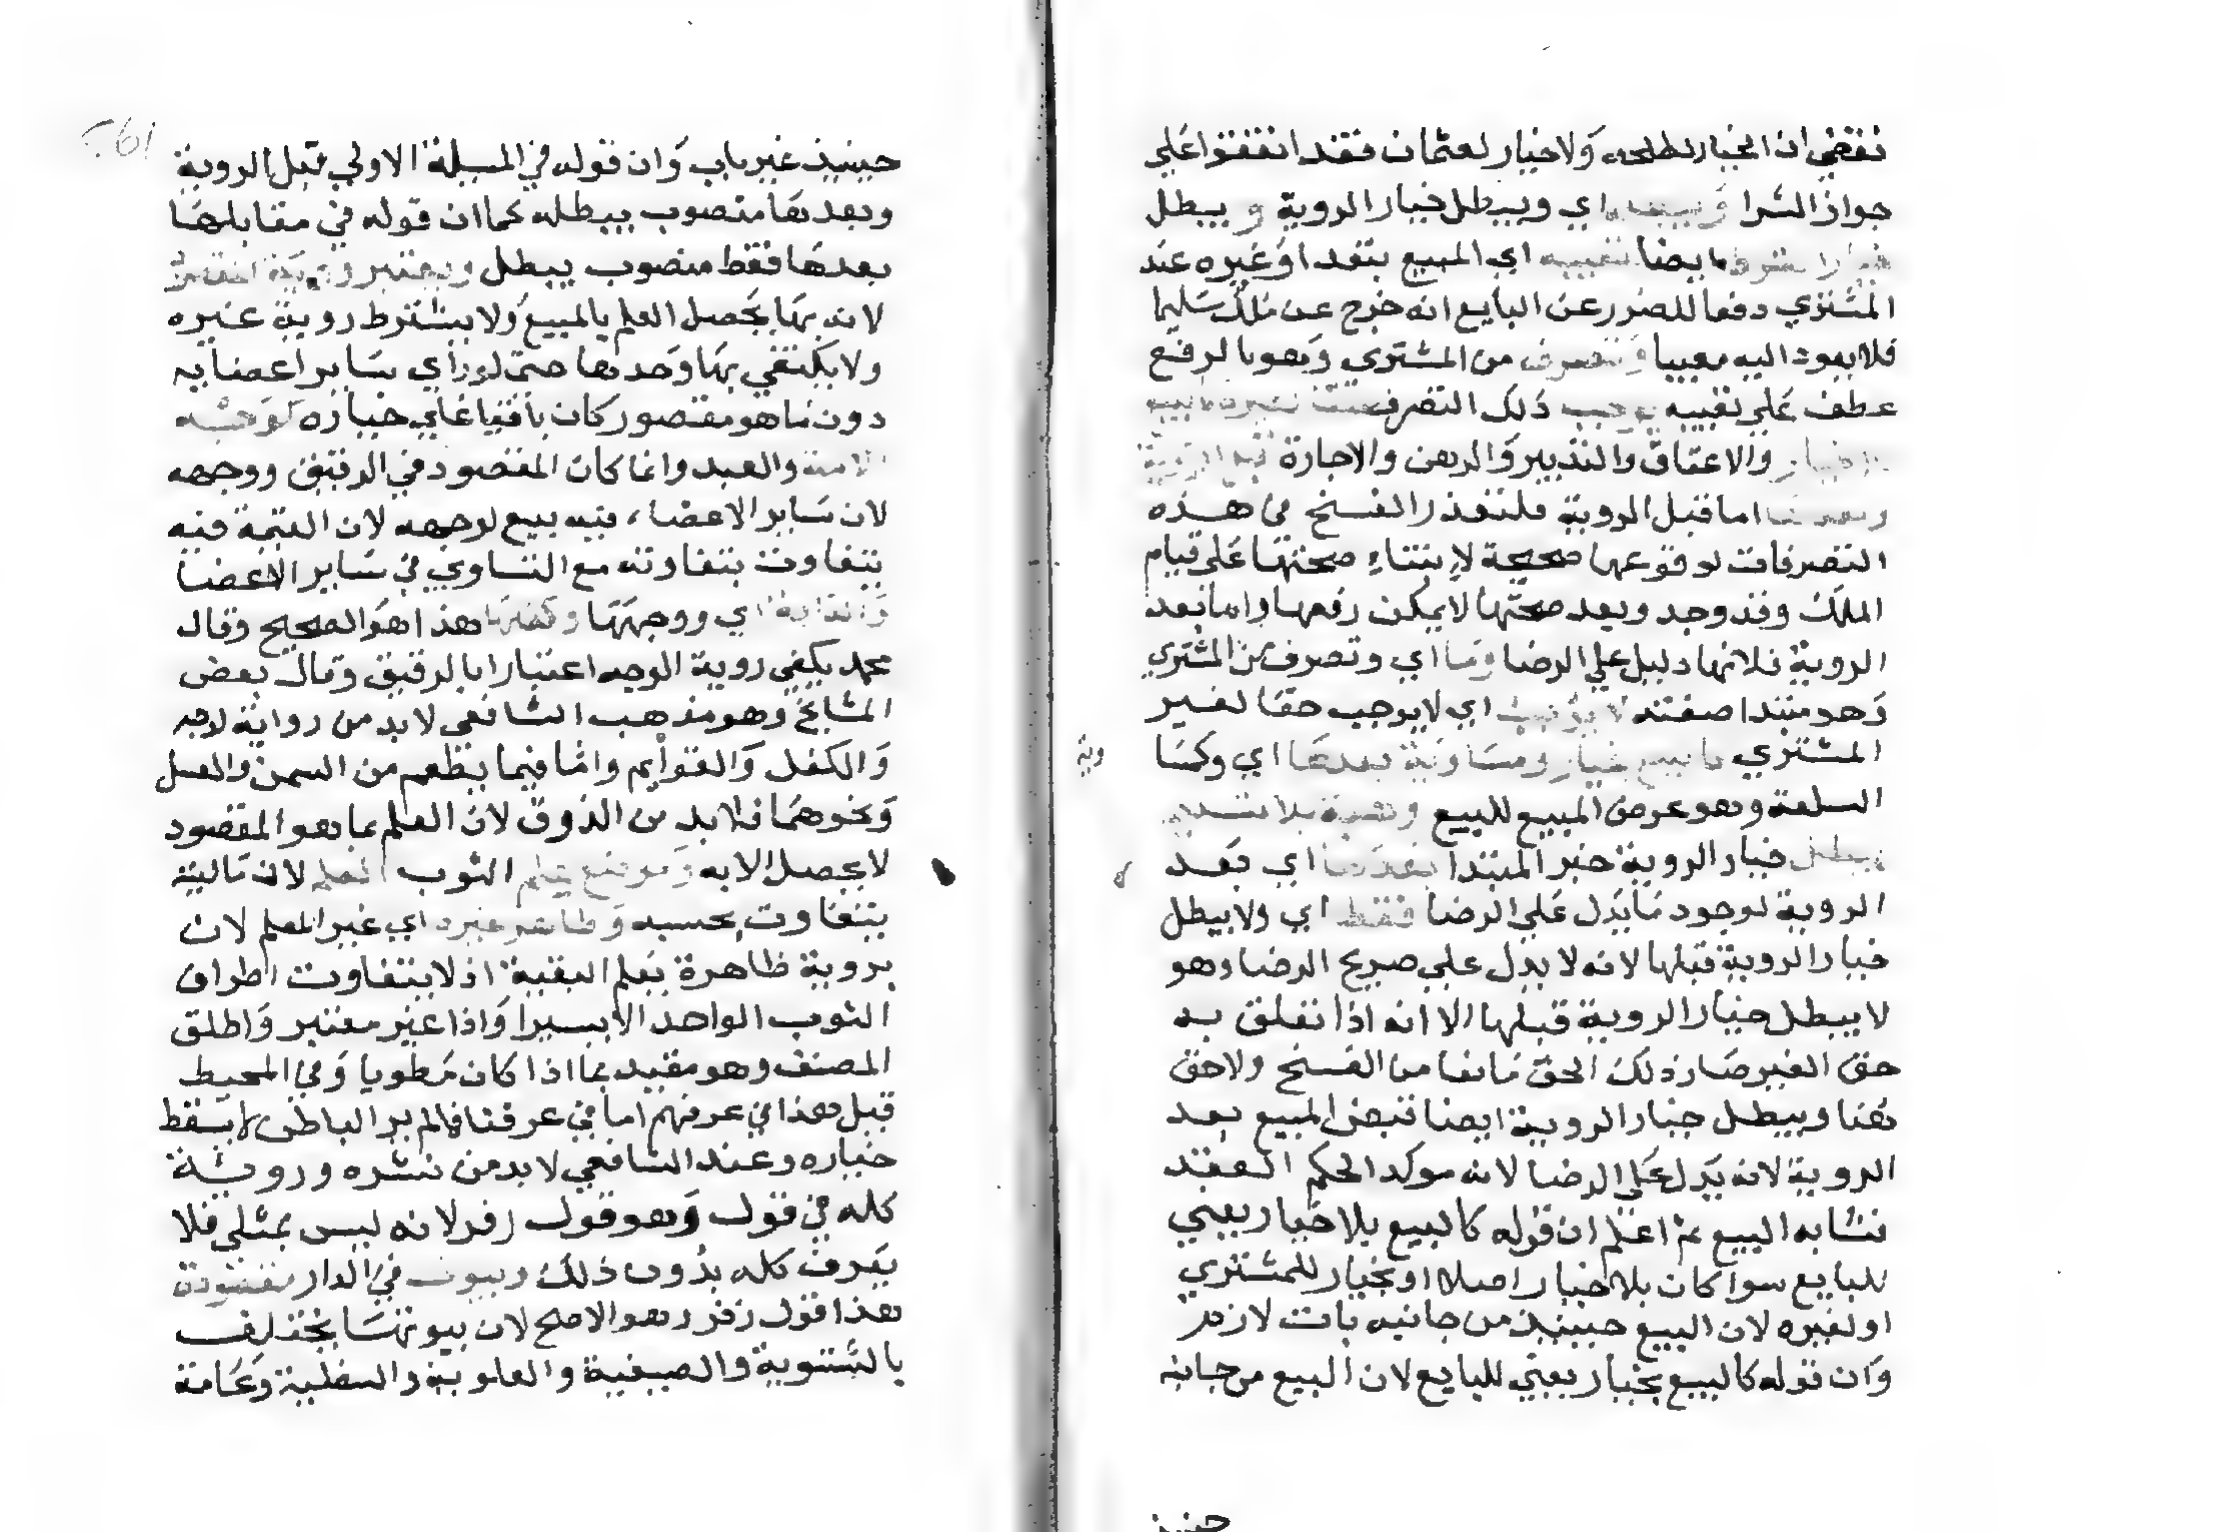 فقضى ان الخيار لطلحه ولا خيار لعثمان فقد اتفقوا على
جواز الشرا اي ويبطل خيار الروية و يبطل
ايضا تعيبه اي المبيع بنقد او غيره عند
المشتري دفعا للضرر عن البايع انه خرج عن ملك سليما
فلا يعود اليه معيبا وتصرف من المشتري وهو بالرفع
عطف على تعيبه يوجب ذلك التصرف
والاعتاق والتدبير والرهن والاجارة قبل الروية
وبعدها اما قبل الروية فلتعذر الفسخ في هذه
التصرفات لوقوعها صحيحة لابتناء صحتها على قيام
الملك وقد وجد وبعد صحتها لا يمكن رفعها واما بعد
الروية فلانها دليل على الرضا وما اي وتصرف من المشتري
وهو مبتدا صفته لا يوجب اي لا يوجب حقا لغير
المشتري كالبيع بخيار ومساومة بعدها اي وكسا
السلعة وهو عرض المبيع للبيع وهبة بلا تسليم
يبطل خيار الروية خبر المبتدا بعدها اي بعد
الروية لوجود ما يدل على الرضا فقط اي ولا يبطل
خيار الروية قبلها لانه لا يدل على صريح الرضا وهو
لا يبطل خيار الروية قبلها الا انه اذا تعلق به
حق الغير صار ذلك الحق مانعا من الفسخ ولا حق
هنا ويبطل خيار الروية ايضا قبض المبيع بعد
الروية لانه يدل على الرضا لانه موكد الحكم العقد
فشابه البيع ثم اعلم ان قوله كالبيع بلا خيار يعني
للبايع سوا كان بلا خيار اصلا او بخيار للمشتري
او لغيره لان البيع حينيذ من جانبه بات لازم
وان قوله كالبيع بخيار يعني للبايع لان البيع من جانبه
حينيذ
حينيذ غير بات وان قوله في المسيلة الاولى قبل الروية
وبعدها منصوب بيبطله كما ان قوله في مقابلها
بعدها فقط منصوب بيبطل ويعتبر روية المقصود
لانه بها يحصل العلم بالمبيع ولا يشترط روية غيره
ولا يكتفي بها وحدها حتى لو راي ساير اعضايه
دون ما هو مقصور كان باقيا على خياره كوجه
الامة والعبد وانما كان المقصود في الرقيق ووجهه
لان ساير الاعضا، فيه بيع لوجهه لان القيمة فيه
يتفاوت بتفاوته مع التساوي في ساير الاعضا
والدابة اي ووجهها وكفلها هذا هو الصحيح وقال
محمد يكفي روية الوجه اعتبارا بالرقيق وقال بعض
المشايخ وهو مذهب الشافعي لا بد من رواية لوجه
والكفل والقوايم واما فيما يطعم من السمن والعسل
ونحوهما فلا بد من الذوق لان العلم بما هو المقصود
لا يحصل الا به وموضع علم الثوب المعلم لان ماليته
يتفاوت بحسبه وظاهر غيره اي غير المعلم لان
بروية ظاهرة يعلم البقية اذ لا يتفاوت اطراف
الثوب الواحد الا يسيرا واذا غير معتبر واطلق
المصنف وهو مقيد بما اذا كان مطويا وفي المحيط
قيل هذا في عرفهم اما في عرفنا فما لم ير الباطن لا يسقط
خياره وعند الشافعي لا بد من نشره وروية
كله في قول وهو قول زفر لانه ليس بمثلي فلا
يعرف كله بدون ذلك وبيوت في الدار مقصودة
هذا قول زفر وهو الاصح لان بيوتها يختلف
بالشتوية والصيفية والعلوية والسفلية وعامة